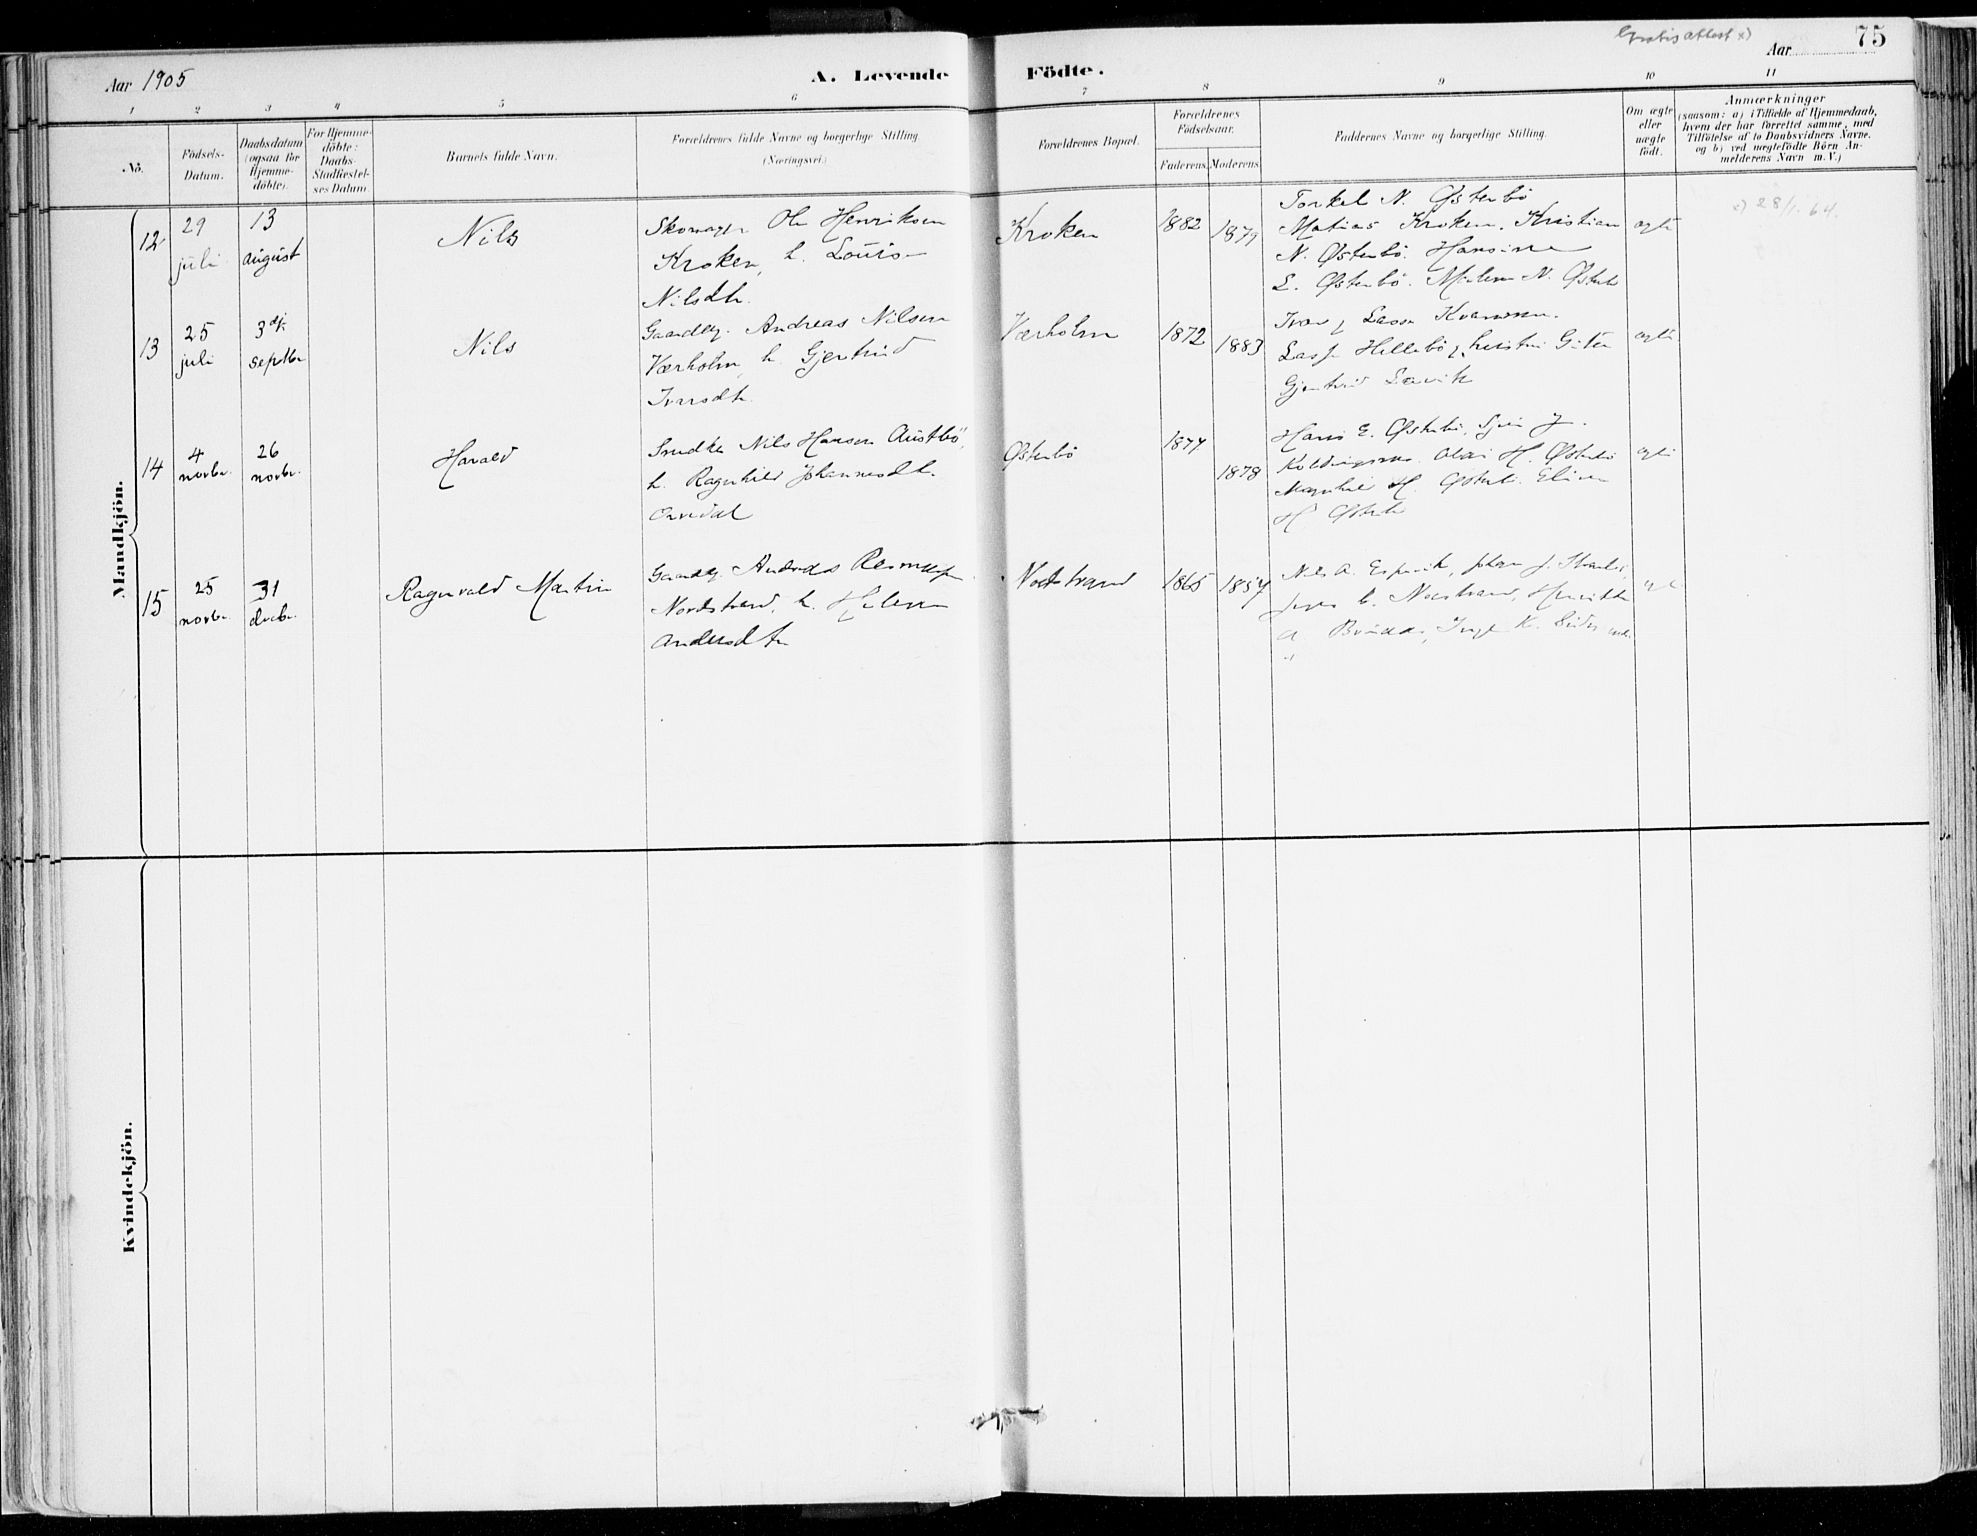 Aar 1905
A. Levende Födte.
Gratisattest x)
Aar 75
1 2 3 4 5 6 7 8 9 10 11
No.
Födsels-
Datum.
Daabsdatum
(ogsaa for
Hjemme-
döbte).
For Hjemme-
döbte:
Daabs-
Stadfæstel-
ses Datum.
Barnets fulde Navn.
Forældrenes fulde Navne og borgerlige Stilling.
(Næringsvei.)
Forældrenes Bopæl.
Forældrenes
Födselsaar.
Faderens. Moderens.
Faddernes Navne og borgerlige Stilling.
Om ægte
eller
uægte
födt.
Anmærkninger
(saasom: a) i Tilfælde af Hjemmedaab,
hvem der har forrettet samme, med
Tilföielse af to Daabsvidners Navne,
og b) ved uægtefödte Börn An-
melderens Navn m. V.)
Mandkjön.
12
29
juli
13
august
Nils
Skomager Ole Henriksen
Kroken, h. Louise
Nilsdtr.
Kroken
1882 1879
Torkel N. Østerbö
Matias Kroken, Kristian
N. Østerbö. Hansine
L. Østerbö. Malene N. Østerbö
ægte
x) 28/1. 64.
13
25
juli
3dj.
septbr
Nils
Gaardbr. Andreas Nilsen
Værholm, h. Gjertrud
Ivarsdtr.
Værholm
1872 1883
Ivar Lasse
Lasse Hillebö
Gjertrud Lavik
ægte
14
4
novbr.
26
novbr.
Harald
Nils Hansen Austbö,
h. Ragnhild Johannesdtr.
Østerbö
1877
1878
Hans E. Østerbö,
H. Østerbö
Magnhild H. Østerbö.
H Østerbö
ægte
15
25
novbr.
31
decbr.
Ragnvald Martin
Gaardbr. Andreas Rasmussen
Nordstrand, h. Helene
Andersdtr
Nordstrand
1865 1857
Nils A. Espevik, Johan J.
Nordstrand,
A. Inga K.
ægte
Kvindekjön.